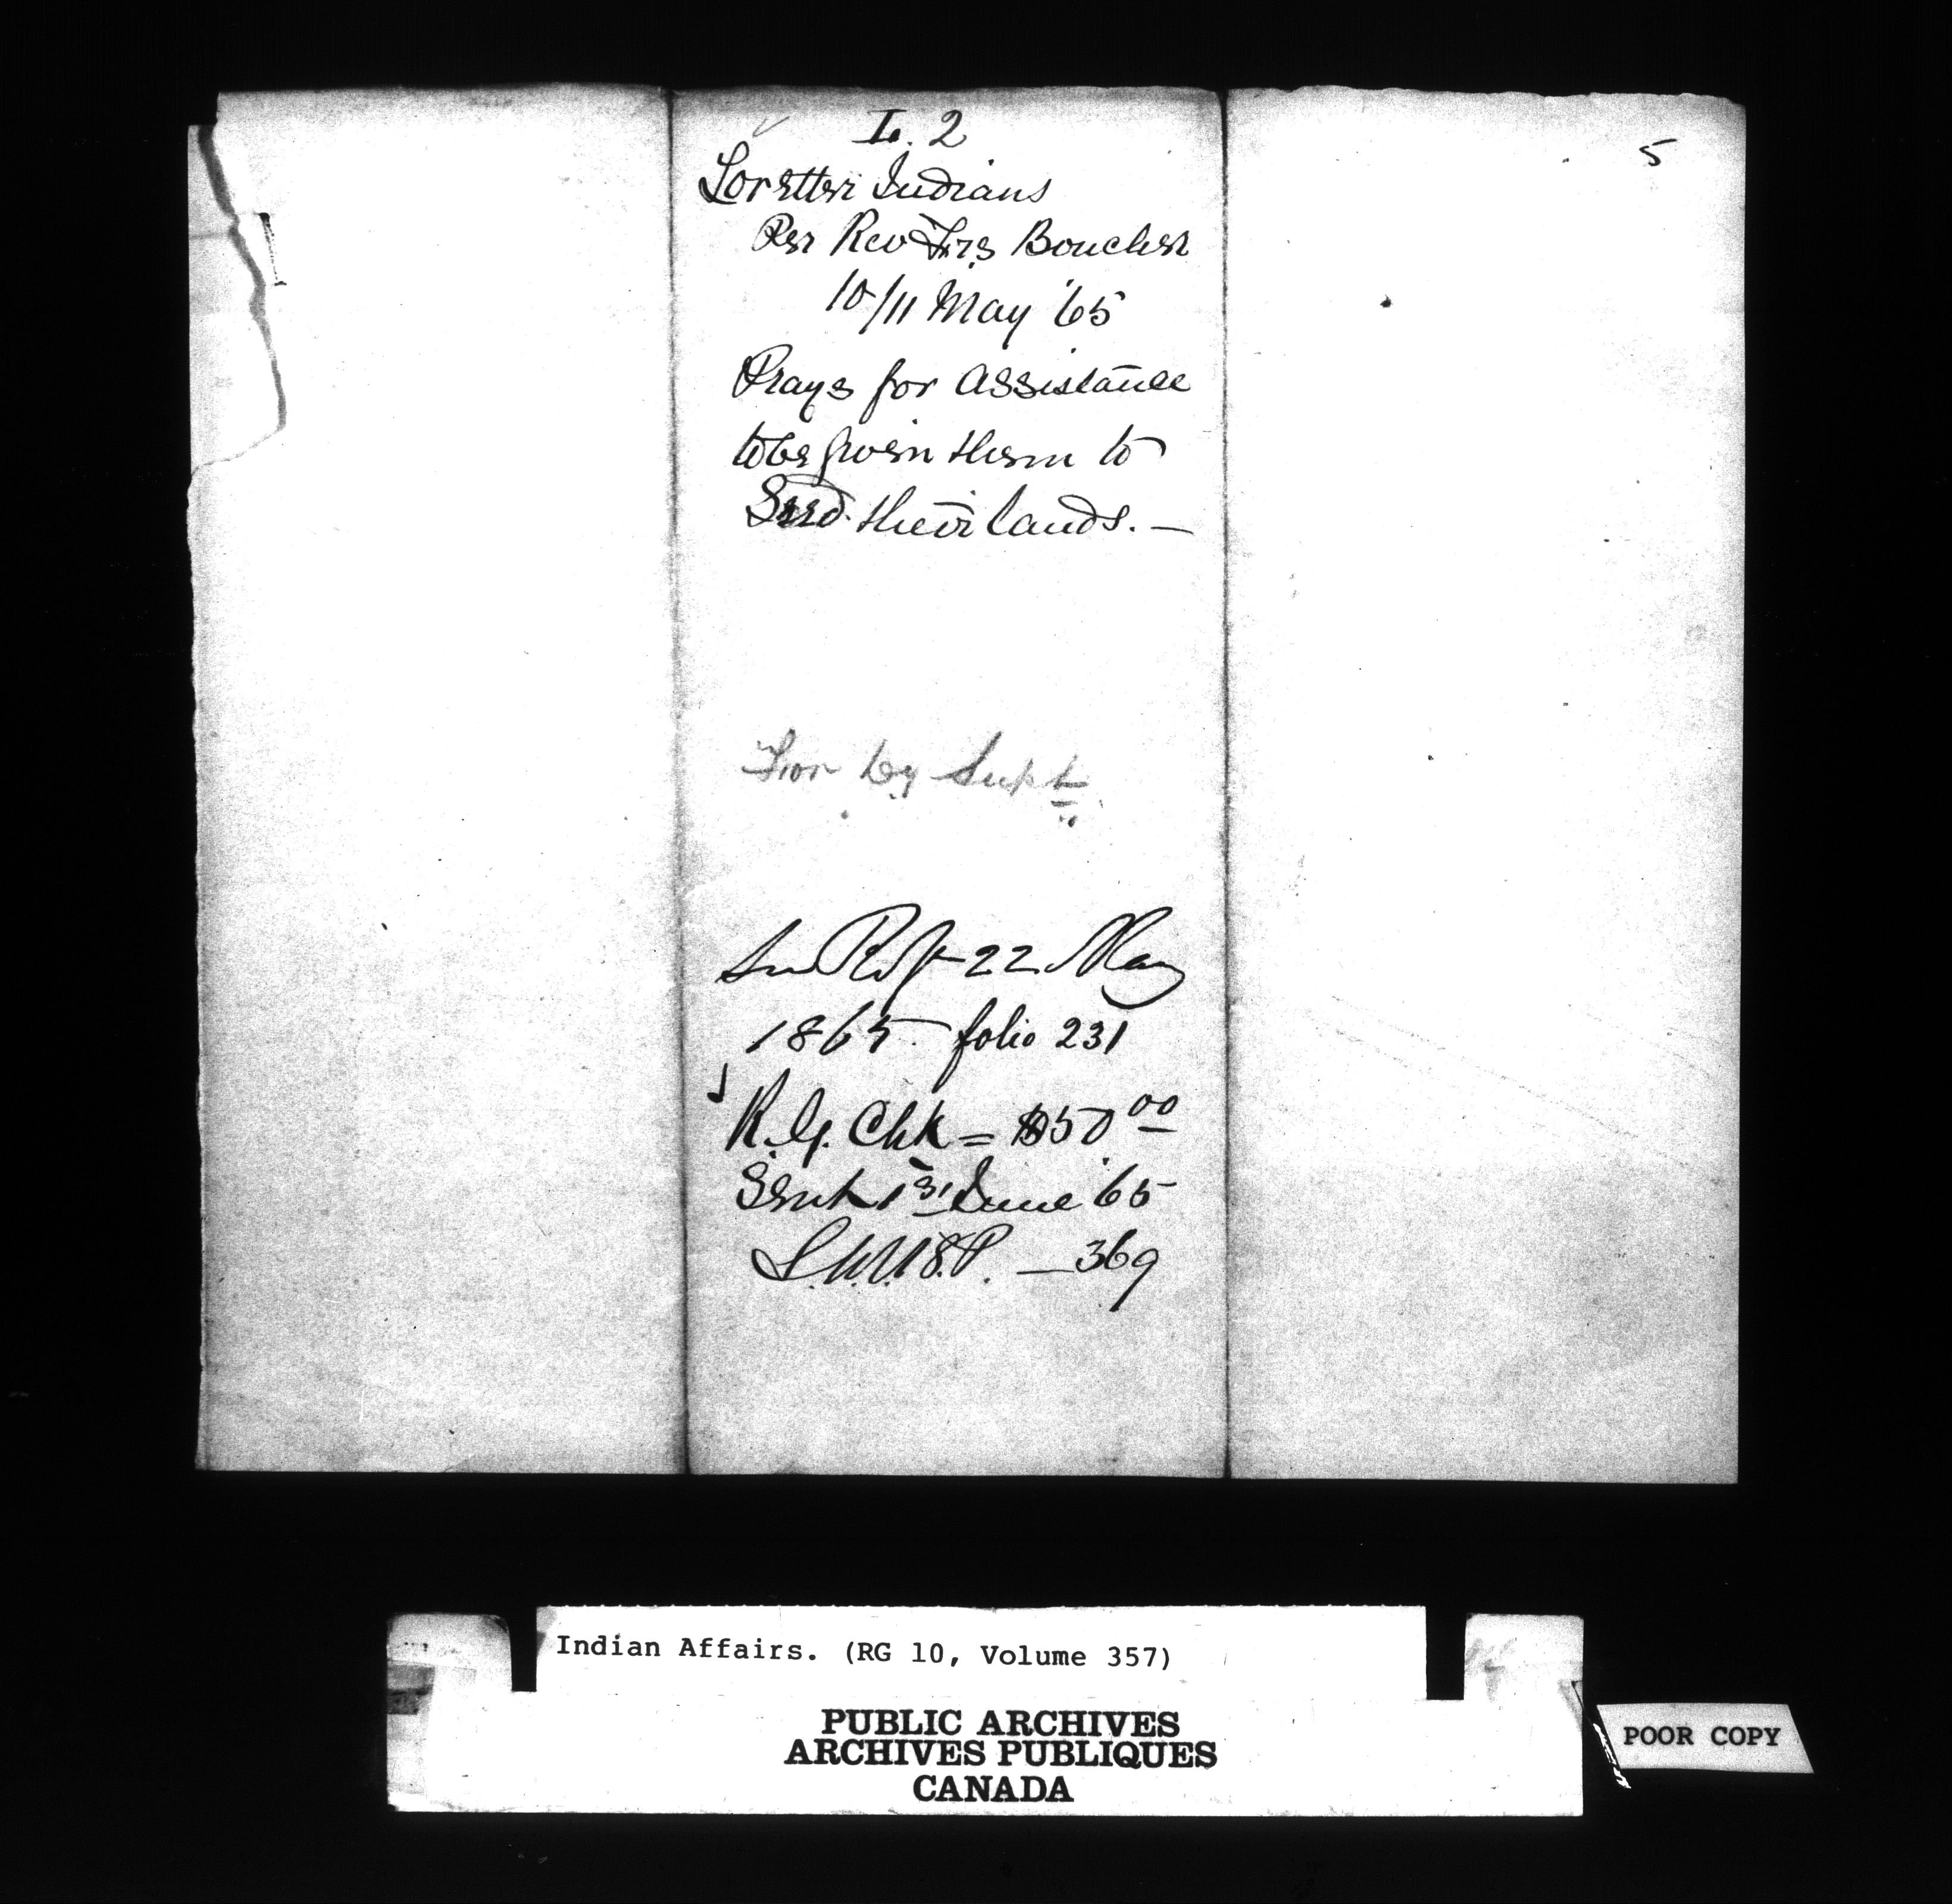 L. 2
5
Lorette Indians
Per Rev Frs Boucher
10/11 May '65
Prays for assistance
to be given them to
Seed their lands. —
by Supt
22 May
1865 folio 231
R.G. Chk = $50.00
Sent 1st June '65
— 369
Indian Affairs. (RG 10, Volume 357)
PUBLIC ARCHIVES
ARCHIVES PUBLIQUES
CANADA
POOR COPY